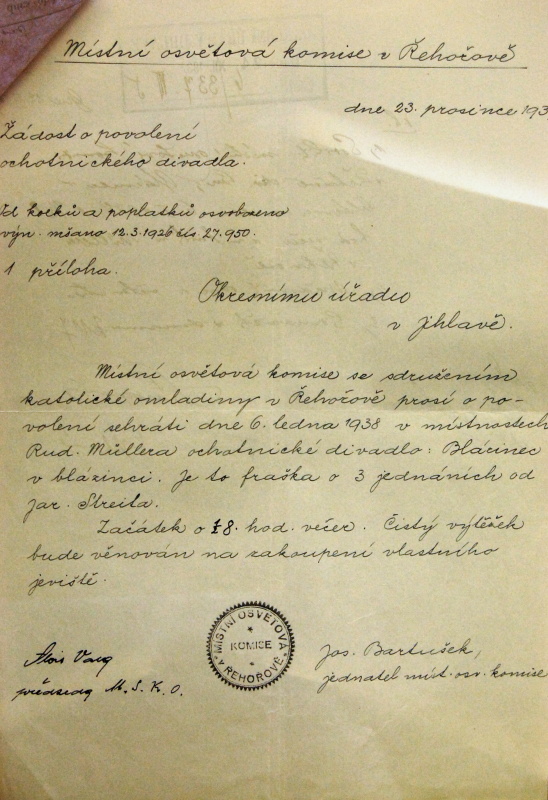 Místní osvětová komise v Řehořově
dne 23. prosince 193
Žádost o povolení
ochotnického divadla.
Od kolků a poplatků osvobozeno
výn. mšano 12.3.1926 čís. 27.950.
1 příloha.
Okresnímu úřadu
v Jihlavě.
Místní osvětová komise se sdružením
katolické omladiny v Řehořově prosí o po-
volení sehráti dne 6. ledna 1938 v místnostech
Rud. Müllera ochotnické divadlo: Blázinec
v blázinci. Je to fraška o 3 jednáních od
Jar. Streita.
Začátek o ½8. hod. večer. Čistý výtěžek
bude věnován na zakoupení vlastního
jeviště.
MÍSTNÍ OSVĚTOVÁ
KOMISE
V ŘEHOŘOVĚ
Alois
předseda M. S. K. O.
Jos. Bartušek,
jednatel míst. osv. komise